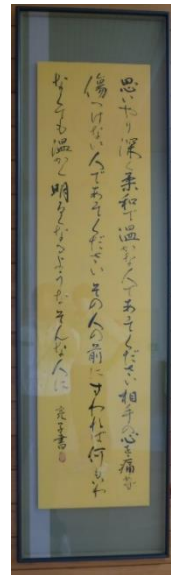 思いやり深く柔和で温かな人であってください 相手の心を痛め
傷つけない人であってください その人の前にすわれば何もいわ
なくても温かく明るくなるようなそんな人に
書